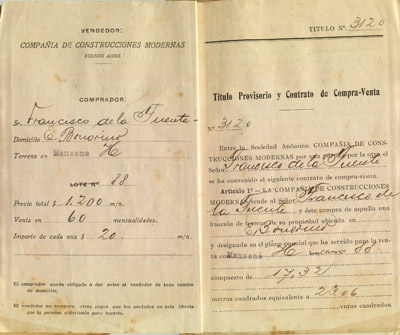 VENDEDOR:
COMPAÑIA DE CONSTRUCCIONES MODERNAS
BUENOS AIRES
COMPRADOR:
Sr. Francisco de la Fuente
Domicilio C. Bonorino
Terreno en Manzana H
LOTE Nº 88
Precio total $ 1.200 m/n.
Venta en 60 mensualidades.
Importe de cada una $ 20 m/n.
El comprador queda obligado á dar aviso al vendedor de todo cambio de domicilio.
El vendedor no reconoce otros pagos que los anotados en esta libreta por la persona autorizada para hacerlo.
TITULO Nº. 3120
Título Provisorio y Contrato de Compra-Venta
Nº. 3120
Entre la Sociedad Anónima COMPAÑIA DE CONS-
TRUCCIONES MODERNAS por una parte y por la otra el
Señor Francisco de la Fuente
se ha convenido el siguiente contrato de compra-venta.
Artículo 1º - LA COMPAÑIA DE CONSTRUCCIONES
MODERNAS vende al Señor Francisco de
la Fuente y éste compra de aquella una
fracción de terreno de su propiedad ubicado en
Bonorino
y designada en el plano especial que ha servido para la ven-
ta con Manzana H 88
compuesto de 17,321
metros cuadrados equivalente a 23.06
varas cuadradas.